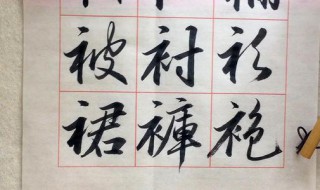 被衬衫
裙褲袍